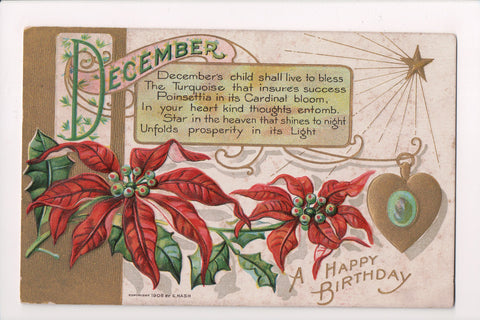 DECEMBER
December's child shall live to bless
The Turquoise that insures success
Poinsettia in its Cardinal bloom,
In your heart kind thoughts entomb.
Star in the heaven that shines to night
Unfolds prosperity in its Light
A HAPPY
BIRTHDAY
COPYRIGHT 1908 BY E. NASH